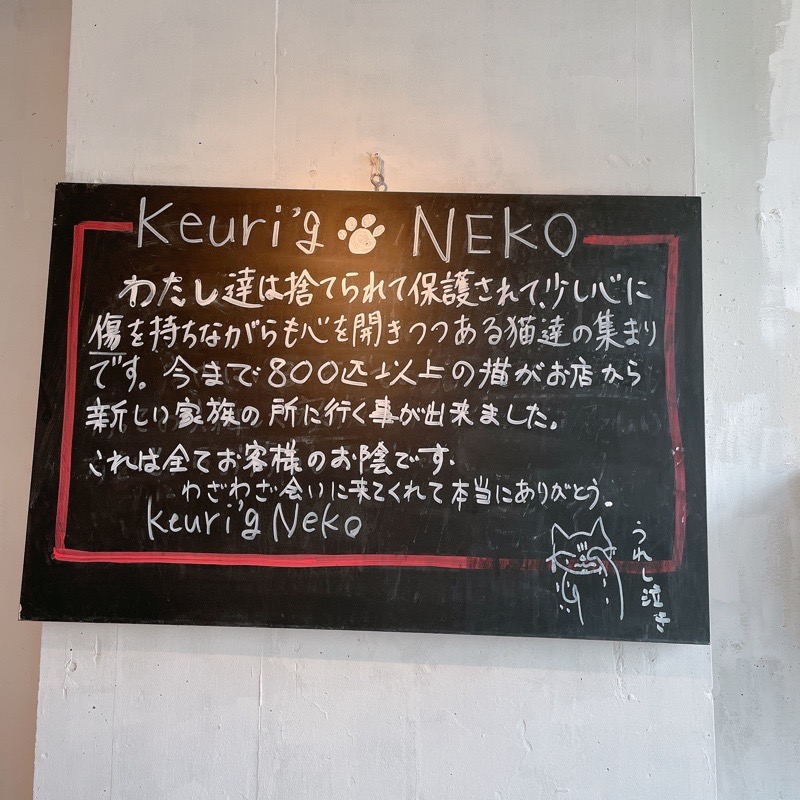 Keuri'g NEKO
わたし達は捨てられて保護されて、少し心に
傷を持ちながらも心を開きつつある猫達の集まり
です。今まで800匹以上の猫がお店から
新しい家族の所に行く事が出来ました。
これは全てお客様のお陰です。
わざわざ会いに来てくれて本当にありがとう。
keuri'g Neko
うれし泣き